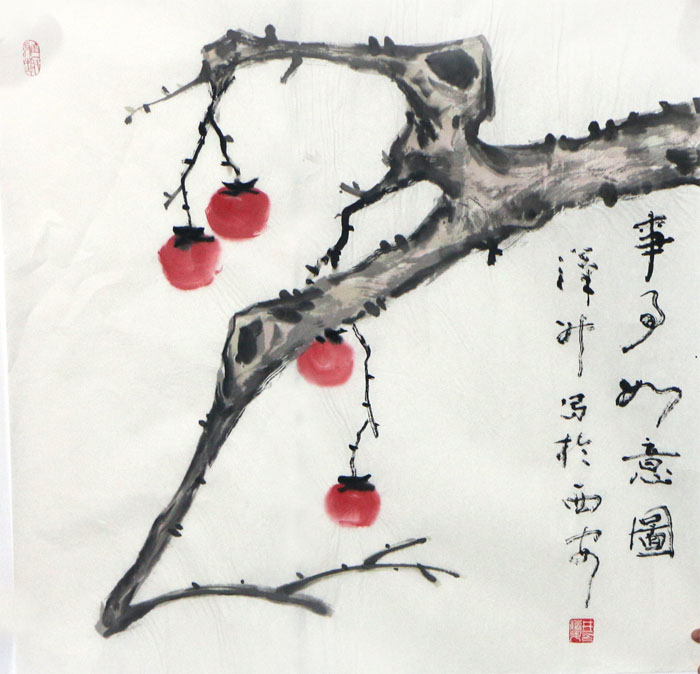 事事如意圖
澤升写於西安